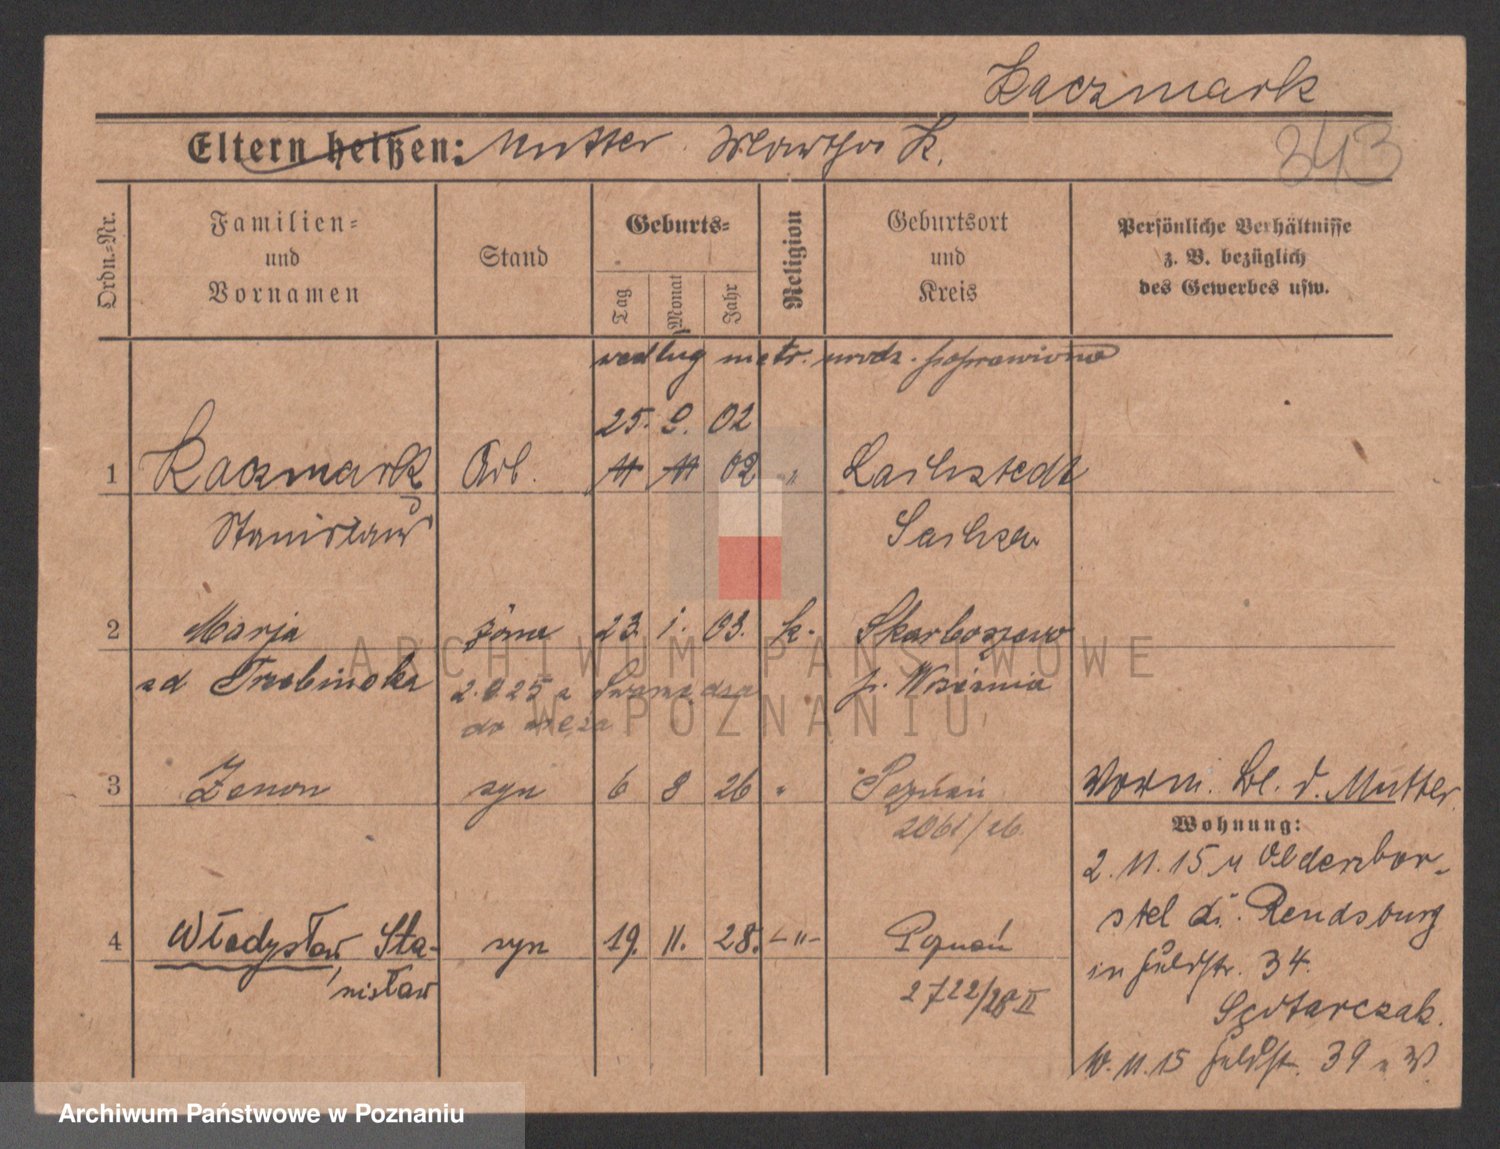 Kaczmark
343
Eltern heißen: Mutter Martha K.
Ordn.-Nr.
Familien- und Vornamen
Stand
Geburts-
Tag
Monat
Jahr
Religion
Geburtsort und Kreis
Persönliche Verhältnisse z. B. bezüglich des Gewerbes usw.
według metr. urodz. poprawiono
25. 9. 02
1 Kaczmark Arb. 11 11 02 " Lachstedt
Stanisław Sachsen
2 Marja żona 23. 1. 03. k. Skarboszewo
zd Trzebinska p. Września
do męża
3 Zenon syn 6 8 26 " Poznań
2061/26
Vorm. Bl. d. Mutter
Wohnung:
2. 11. 15 Oldenbor-
stel Rendsburg
in Feldstr. 34.
4 Władysław Sta- syn 19. 11. 28. -"- Poznań
nisław
2722/28 II
11. 15 Feldstr. 39
ARCHIWUM PAŃSTWOWE
W POZNANIU
Archiwum Państwowe w Poznaniu